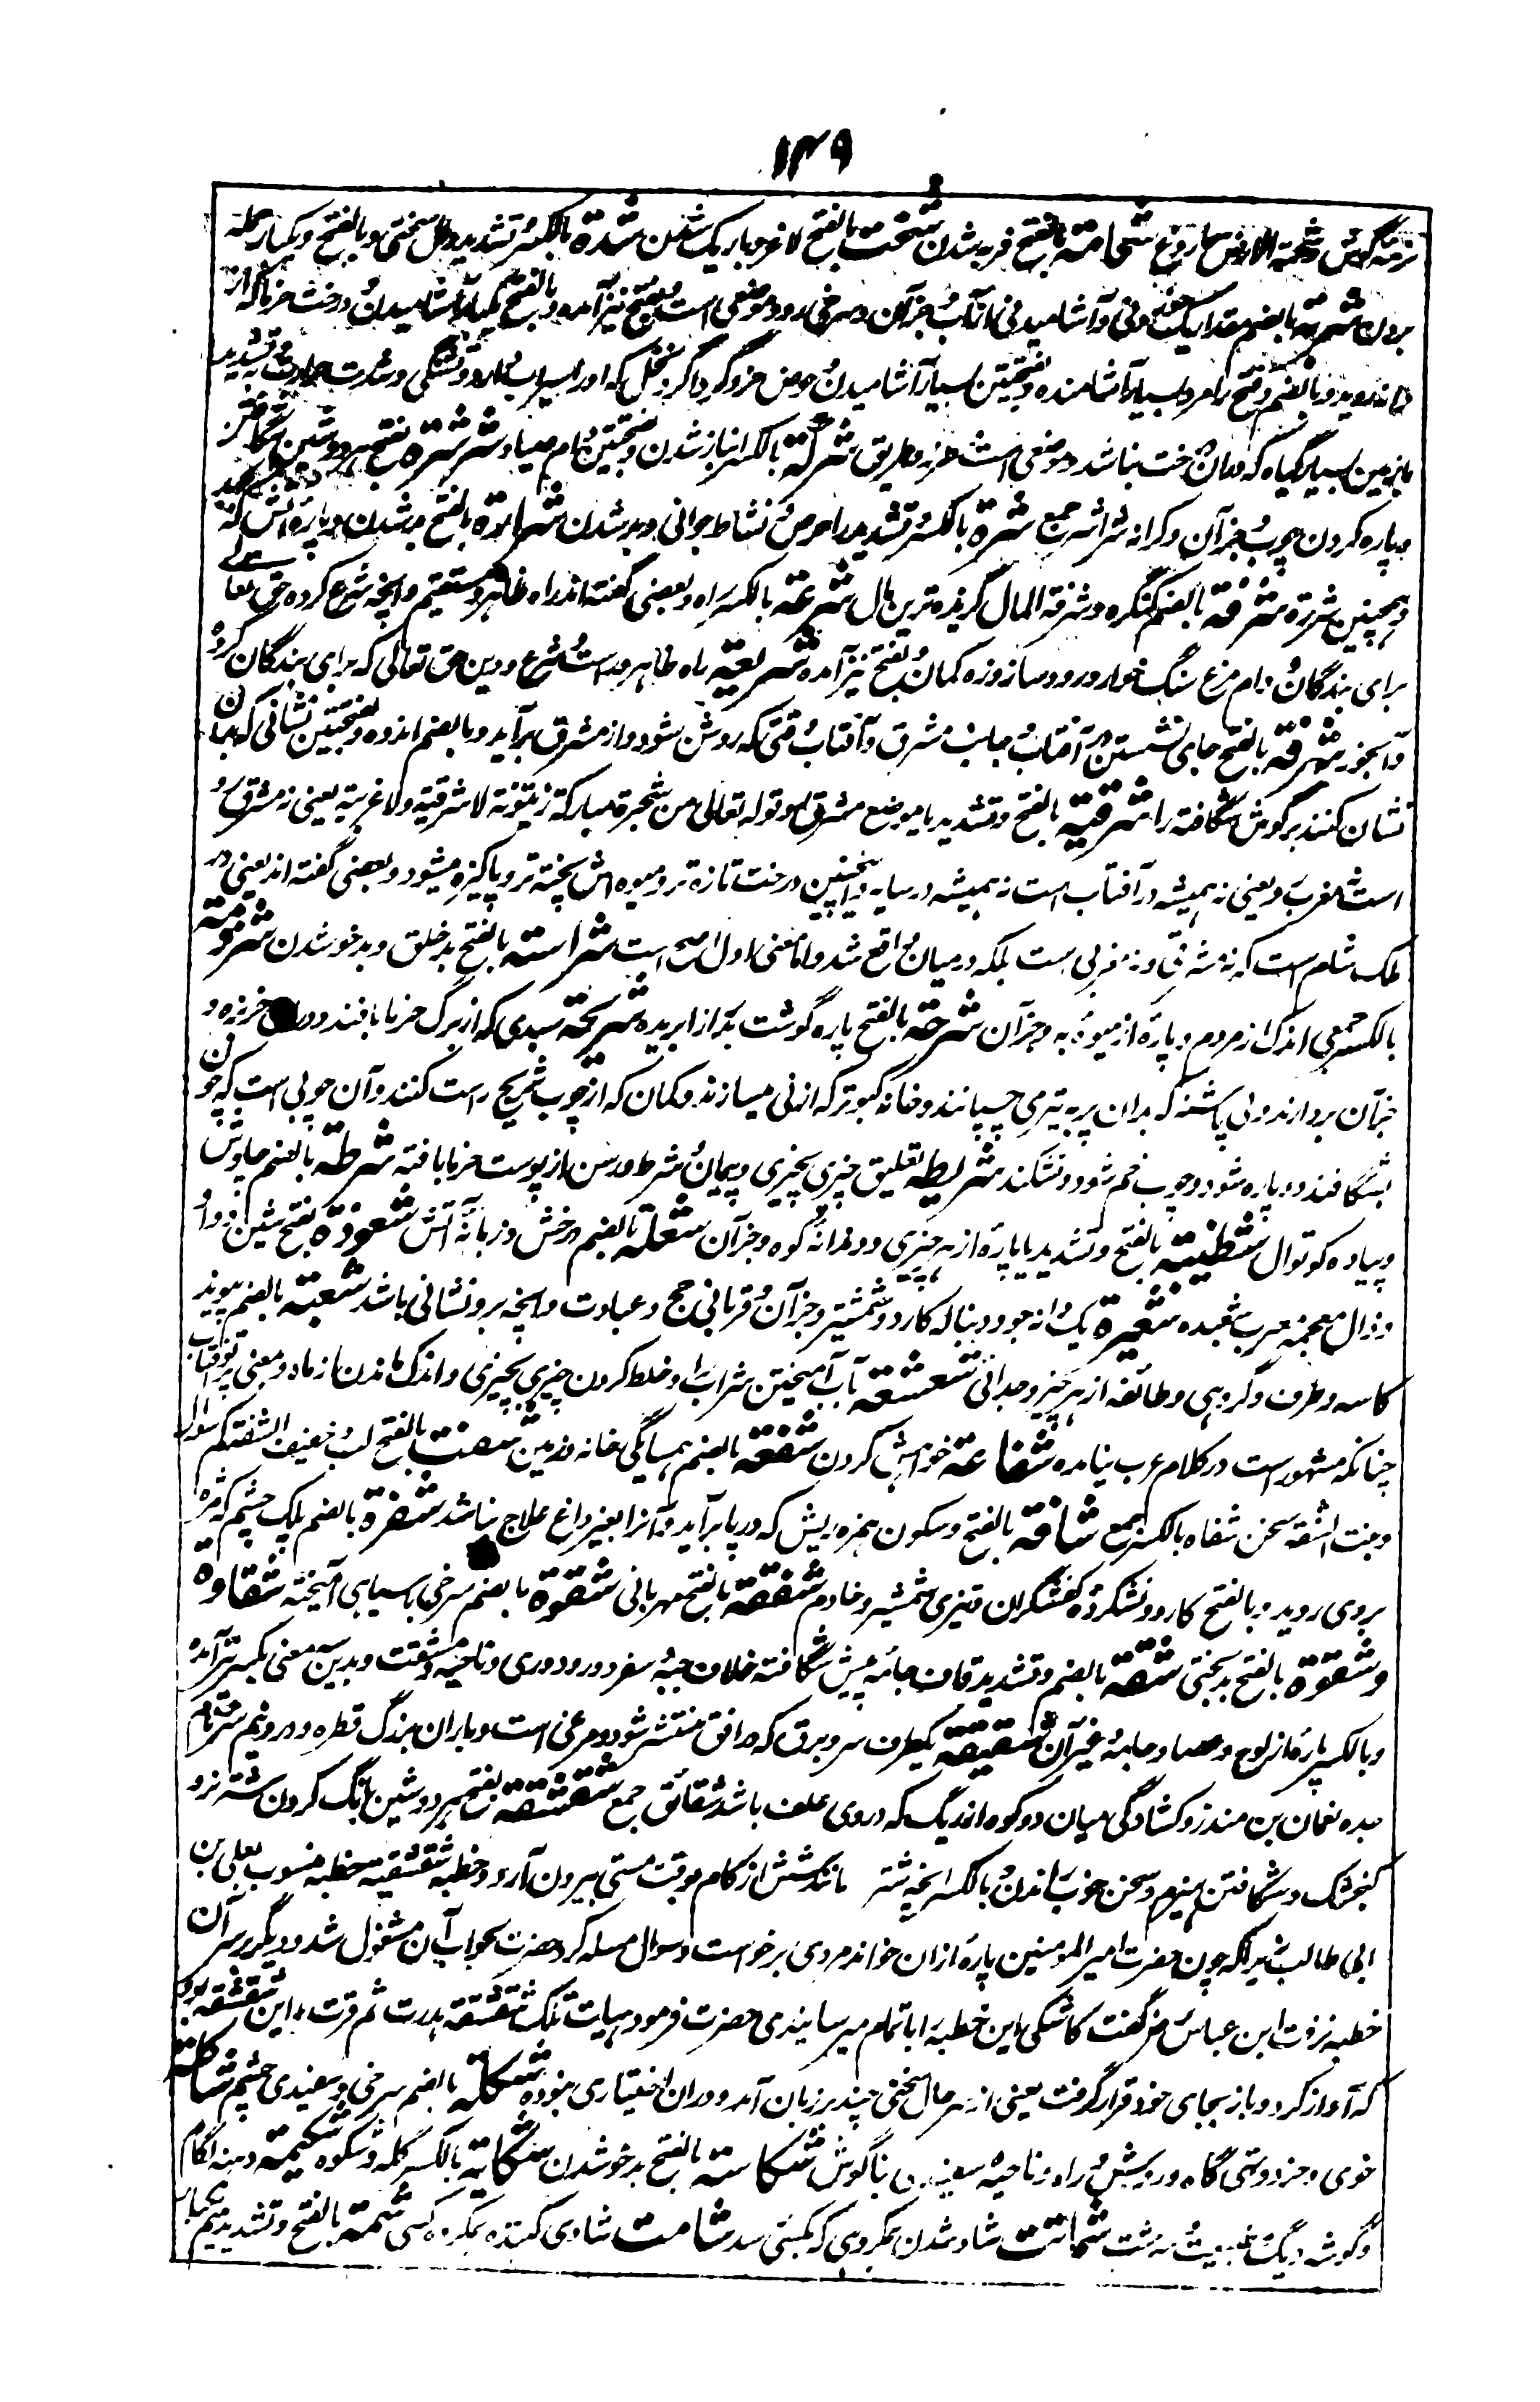 ۱۴۹
نرمهٔ گوش و شحمة الارض سماروغ شحامة بالفتح فربه شدن شخت بالفتح لاغر و باریک شدن شدة بالکسر و تشدید دال سختی و بالفتح و یکبار حمله
بردن شربة بالضم مقدار یک و آشامیدنی از آب و جز آن و سرخی رو و موضعی است و بفتح نیز آمده و بالفتح یکبار آشامیدن و درخت خرما که از
دانه روید و بالضم و فتح را مرد بسیار آشامنده و بفتحتین بسیار آشامیدن و حوض خرد گرداگرد نخل که او را سیراب دارد و تشنگی و شدت حرارت و تشدید
با زمین بسیار گیاه که در آن درخت نباشد و موضعی است و خربزه و طریق شرکة بالکسر انباز شدن و بفتحتین دام صیاد شرشرة بفتح هر دو شین شگافتن
و پاره کردن چوب و جز آن و کرانه شراشر جمع شرة بالکسر و تشدید را حرص و نشاط جوانی و بد شدن شرارة بالفتح بد شدن و پاره آتش که
و همچنین شررة شرفة بالضم کنگره و شرفة المال گزیده ترین مال شرعة بالکسر راه و بعضی گفته اند راه ظاهر و مستقیم و آنچه شرع کرده حق تعالی
برای بندگان و دام مرغ سنگ خوار و رود ساز و زه کمان و بفتح نیز آمده شریعة راه ظاهر و راست و شرع و دین حق تعالی که برای بندگان کرده
و آبخور شرقة بالفتح جای نشستن در آفتاب و جانب مشرق و آفتاب وقتی که روشن شود و از مشرق برآید و بالضم اندوه و بفتحتین نشانی که بدان
نشان کنند بز گوش شگافته را شرقیة بالفتح و تشدید یا موضع مشرق و قوله تعالی من شجرة مبارکة زیتونة لا شرقیة و لا غربیة یعنی نه مشرق رو
است نه مغرب رو یعنی نه همیشه در آفتاب است نه همیشه در سایه و اینچنین درخت تازه تر و میوه اش پخته تر و پاکیزه میشود و بعضی گفته اند یعنی در
ملک شام است که نه شرقی و نه غربی است بلکه در میان واقع شد و اما معنی اول اصح است شراسة بالفتح بد خلق و بدخو شدن شرذمة
بالکسر جمعی اندک از مردم و پاره از میوه به و جز آن شرحة بالفتح پاره گوشت دراز بریده شریجة سبدی که از برگ خرما بافند و در خربزه و
جز آن بردارند و پی پاشنه که بدان پر به تیر می چسپانند و خانه کبوتر که از نی میسازند و کمان که از چوب شریج راست کنند و آن چوبی است که چون
بشگافند دو پاره شود و چوب خم شود و نشکند شریطة تعلیق چیزی بچیزی و پیمان و شرط و رسن از پوست خرما بافته شرطة بالضم چاوش
و پیاده کوتوال شظیة بالفتح و تشدید یا پاره از هر چیزی و دندانه کوه و جز آن شعلة بالضم درخش و زبانه آتش شعوذة بفتح شین و واو
و ذال معجمه معرب شعبده شعیرة یک دانه جو و دنباله کارد و شمشیر و جز آن و قربانی حج و عبادت و آنچه برو نشانی باشد شعبة بالضم پیوند
کاسه و طرف و گروهی و طائفه از هر چیز و جدائی شعشعة آب آمیختن شراب را و خلط کردن چیزی بچیزی و اندک ماندن از ماه و بمعنی پرتو آفتاب
چنانکه مشهور است در کلام عرب نیامده شفاعة خواهش کردن شفعة بالضم همسایگی خانه و زمین شفة بالفتح لب خفیف الشفة کم سوال
و بنت الشفة سخن شفاه بالکسر جمع شأفة بالفتح و سکون همزه ریش که در پا برآید و آنرا بغیر داغ علاج نباشد شفرة بالضم پلک چشم که مژه
بروی روید و بالفتح کارد و نشکرده کفشگران و تیزی شمشیر و خادم شفقة بالفتح مهربانی شقرة بالضم سرخی با سیاهی آمیخته شقاوة
و شقوة بالفتح بدبختی شقة بالضم و تشدید قاف جامه پیش شگافته خلاف جبه و سفر دور و دوری و ناحیه و مشقت و بدین معنی بکسر نیز آمده
و بالکسر پاره از لوح و عصا و جامه و غیر آن شقیقة یکطرف سر و برق که در افق منتشر شود و مرغی است و باران بزرگ قطره و درد نیم سر و نام
جده نعمان بن منذر و کشادگی میان دو کوه اندر یگ که در وی علف باشد شقائق جمع شقشقة بفتح هر دو شین بانگ کردن شتر نر و
کنجشک و شگافتن هیزم و سخن خوب راندن و بالکسر آنچه شتر مانند شش از کام بوقت مستی بیرون آرد و خطبه شقشقیه خطبه منسوب بعلی بن
ابی طالب زیرا که چون حضرت امیر المؤمنین پاره ازان خواند مردی برخواست و سوال مسئله کرد حضرت بجواب آن مشغول شد و دیگر بر سر آن
خطبه نرفت ابن عباس رض گفت کاشکی این خطبه را با تمام میرسانیدی حضرت فرمود هیهات تلک شقشقة هدرت ثم قرت این شقشقه بود
که آواز کرد و باز بجای خود قرار گرفت یعنی از سر حال سخنی چند بر زبان آمد و در ان اختیاری نبوده شکلة بالضم سرخی و سفیدی چشم شاکلة
خوی و حد و تهی گاه و روش و راه و ناحیه و سفیدی بناگوش شکاسة بالفتح بدخو شدن شکایة بالکسر گله و شکوه شکیمة دهنه لگام
و گوشه دیگ و طبیعت و سرشت شماتة شاد شدن بمکروهی که بکسی رسد شامت شادی کننده بمکروه کسی شمة بالفتح و تشدید میم یکبار